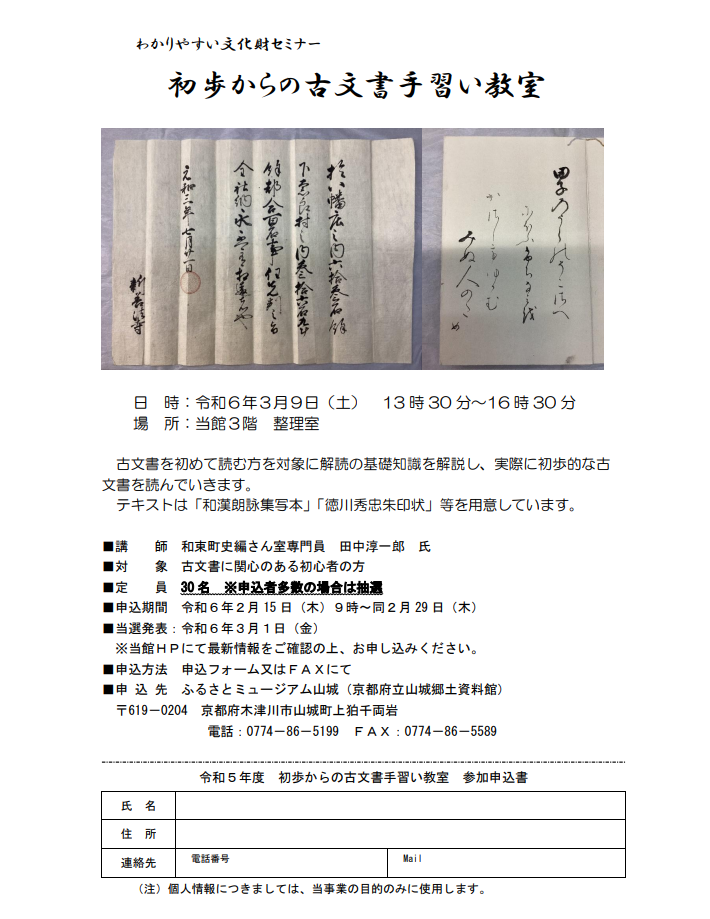 わかりやすい文化財セミナー
初歩からの古文書手習い教室
於八幡庄之内六拾叁石餘
下奈良村之内叁拾六石九斗
餘都合百石事任先判之旨
全社納永不可有相違者也
元和三年七月廿一日
新善法寺
みぬ人のため
日　時：令和６年３月９日（土）　13時30分～16時30分
場　所：当館３階　整理室
古文書を初めて読む方を対象に解読の基礎知識を解説し、実際に初歩的な古
文書を読んでいきます。
テキストは「和漢朗詠集写本」「徳川秀忠朱印状」等を用意しています。
■講　　師　和束町史編さん室専門員　田中淳一郎　氏
■対　　象　古文書に関心のある初心者の方
■定　　員　30名　※申込者多数の場合は抽選
■申込期間　令和６年２月15日（木）９時～同２月29日（木）
■当選発表：令和６年３月１日（金）
※当館ＨＰにて最新情報をご確認の上、お申し込みください。
■申込方法　申込フォーム又はＦＡＸにて
■申 込 先　ふるさとミュージアム山城（京都府立山城郷土資料館）
〒619－0204　京都府木津川市山城町上狛千両岩
電話：0774－86－5199　ＦＡＸ：0774－86－5589
令和５年度　初歩からの古文書手習い教室　参加申込書
氏　名
住　所
連絡先　電話番号　Mail
（注）個人情報につきましては、当事業の目的のみに使用します。